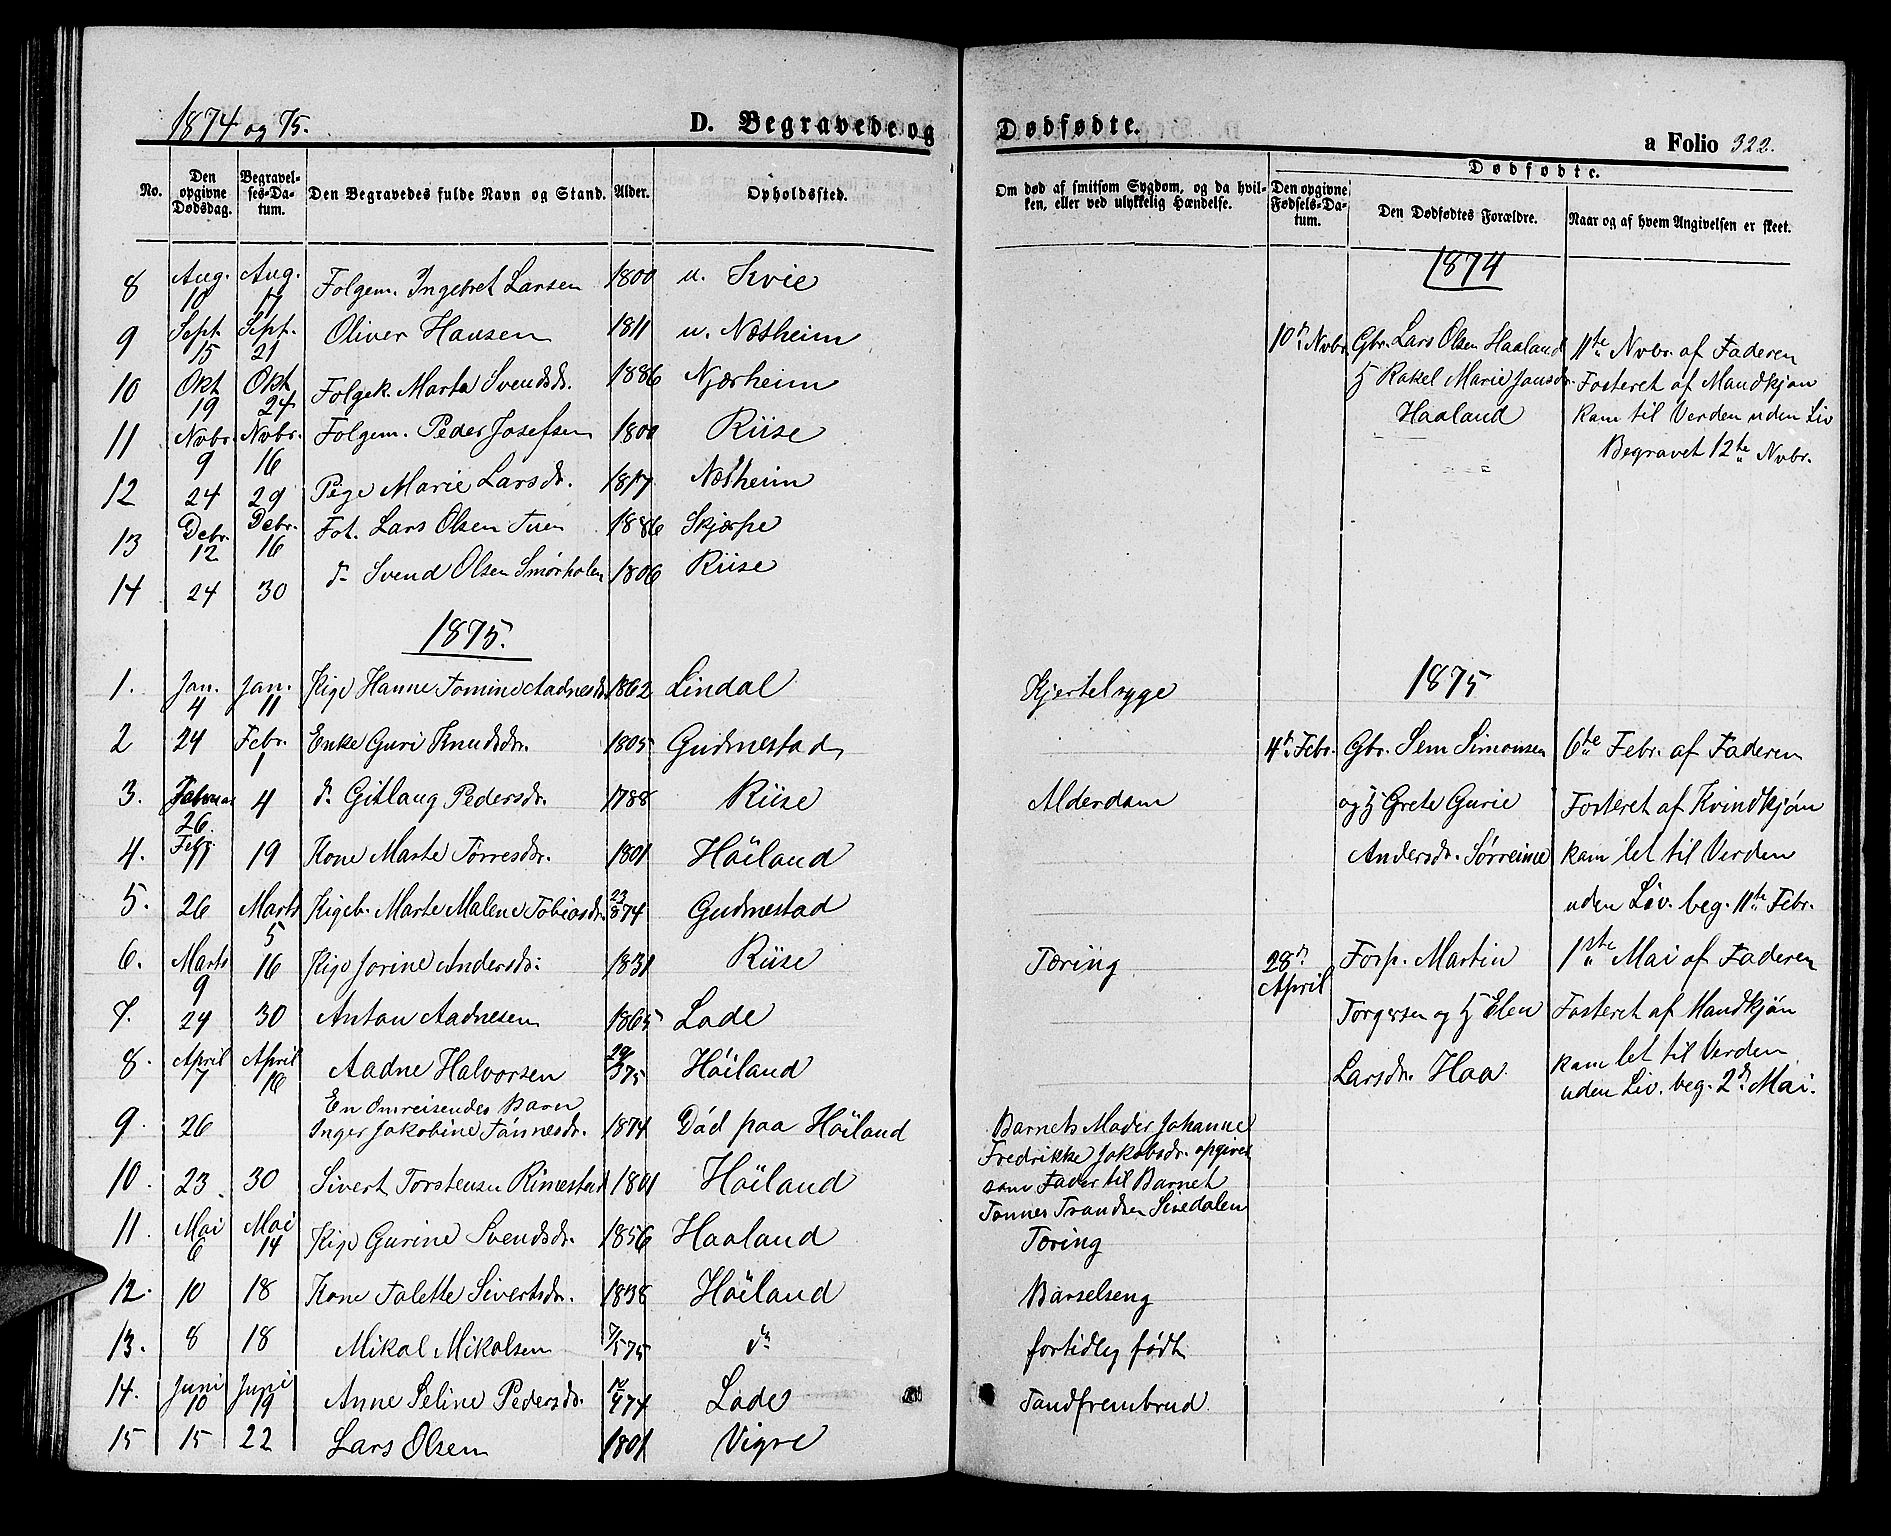 1874 og 75.
D. Begravede og Dødfødte.
a Folio 322.
No. Den opgivne Dødsdag. Begravelses-Datum. Den Begravedes fulde Navn og Stand. Alder. Opholdssted.
Om død af smitsom Sygdom, og da hvilken, eller ved ulykkelig Hændelse.
Dødfødte.
Den opgivne Fødsels-Datum. Den Dødfødtes Forældre. Naar og af hvem Angivelsen er skeet.
8 Aug. 10 Aug. 17 Folgem. Ingebret Larsen 1800 u. Kvie
9 Sept. 15 Sept. 21 Oliver Hansen 1811 u. Næsheim
10 Okt 19 Okt 24 Folgek. Marta Svendsdr. 1886 Njærheim
11 Novbr. 9 Novbr. 16 Folgem. Peder Josefsen 1800 Riise
12 24 29 Pige Marie Larsdr. 1817 Næsheim
13 Debr. 12 Debr. 16 Fot. Lars Olsen Tuen 1886 Skjærpe
14 24 30 dn Svend Olsen Smørholen 1806 Riise
1875.
1. Jan. 4 Jan. 11 Pige Hanne Tomine Aadnesdr. 1862 Lindal Kjertelsyge
2 24 Febr. 1 Enke Guri Knudsdr. 1805 Gudmestad
3. 26. 4 dn Gitlaug Pedersdr. 1788 Riise Alderdom
4. Febr. 11 19 Kone Marte Torresdr. 1801 Höiland
5. 26 Marts 5 Pigeb. Marte Malene Tobiasdr. 23/8 74 Gudmestad
6. Marts 9 16 Pige Jorine Andersdr. 1831 Riise Tæring
7. 24 30 Anton Aadnesen 1865 Lode
8. April 7 April 16 Aadne Halvorsen 29/3 75 Höiland
En Omreisendes Barn
9. 26 Inger Jakobine Tönnesdr. 1874 Död paa Höiland Barnets Moder Johanne
Fredrikke Jakobsdr. opgives
10. 23. 30 Sivert Torstensen Rimestad 1801 Höiland som Fader til Barnet
Tønnes Trondsen Sivedalen
11. Mai 6 Mai 14 Pige Gurine Svendsdr. 1856 Haaland Tæring
12. 10 18 Kone Talette Sivertsdr. 1838 Höiland Barselseng
13. 8 18 Mikal Mikalsen 7/5 75 dn fortidlig født
14. Juni 10 Juni 19 Anne Seline Pedersdr. 4 74 Lode Tandfrembrud
15 15 22 Lars Olsen 1801 Vigre
1874
10n Novbr. Gbr. Lars Olsen Haaland 11te Novbr. af Faderen
Rakel Marie Jansdr. Fosteret af Mandkjøn
Haaland kom til Verden uden Liv
Begravet 12te Novbr.
1875
4n Febr. Gbr. Sem Simonsen 6te Febr. af Faderen
og H Grete Gurie Fosteret af Kvindkjøn
Andersdr. Sørreime kom let til Verden
uden Liv. beg. 11te Febr.
28n April Forp. Martin 1ste Mai af Faderen
Torgersen og H Elen Fosteret af Mandkjøn
Larsdr. Haa kom let til Verden
uden Liv. beg. 2n Mai.